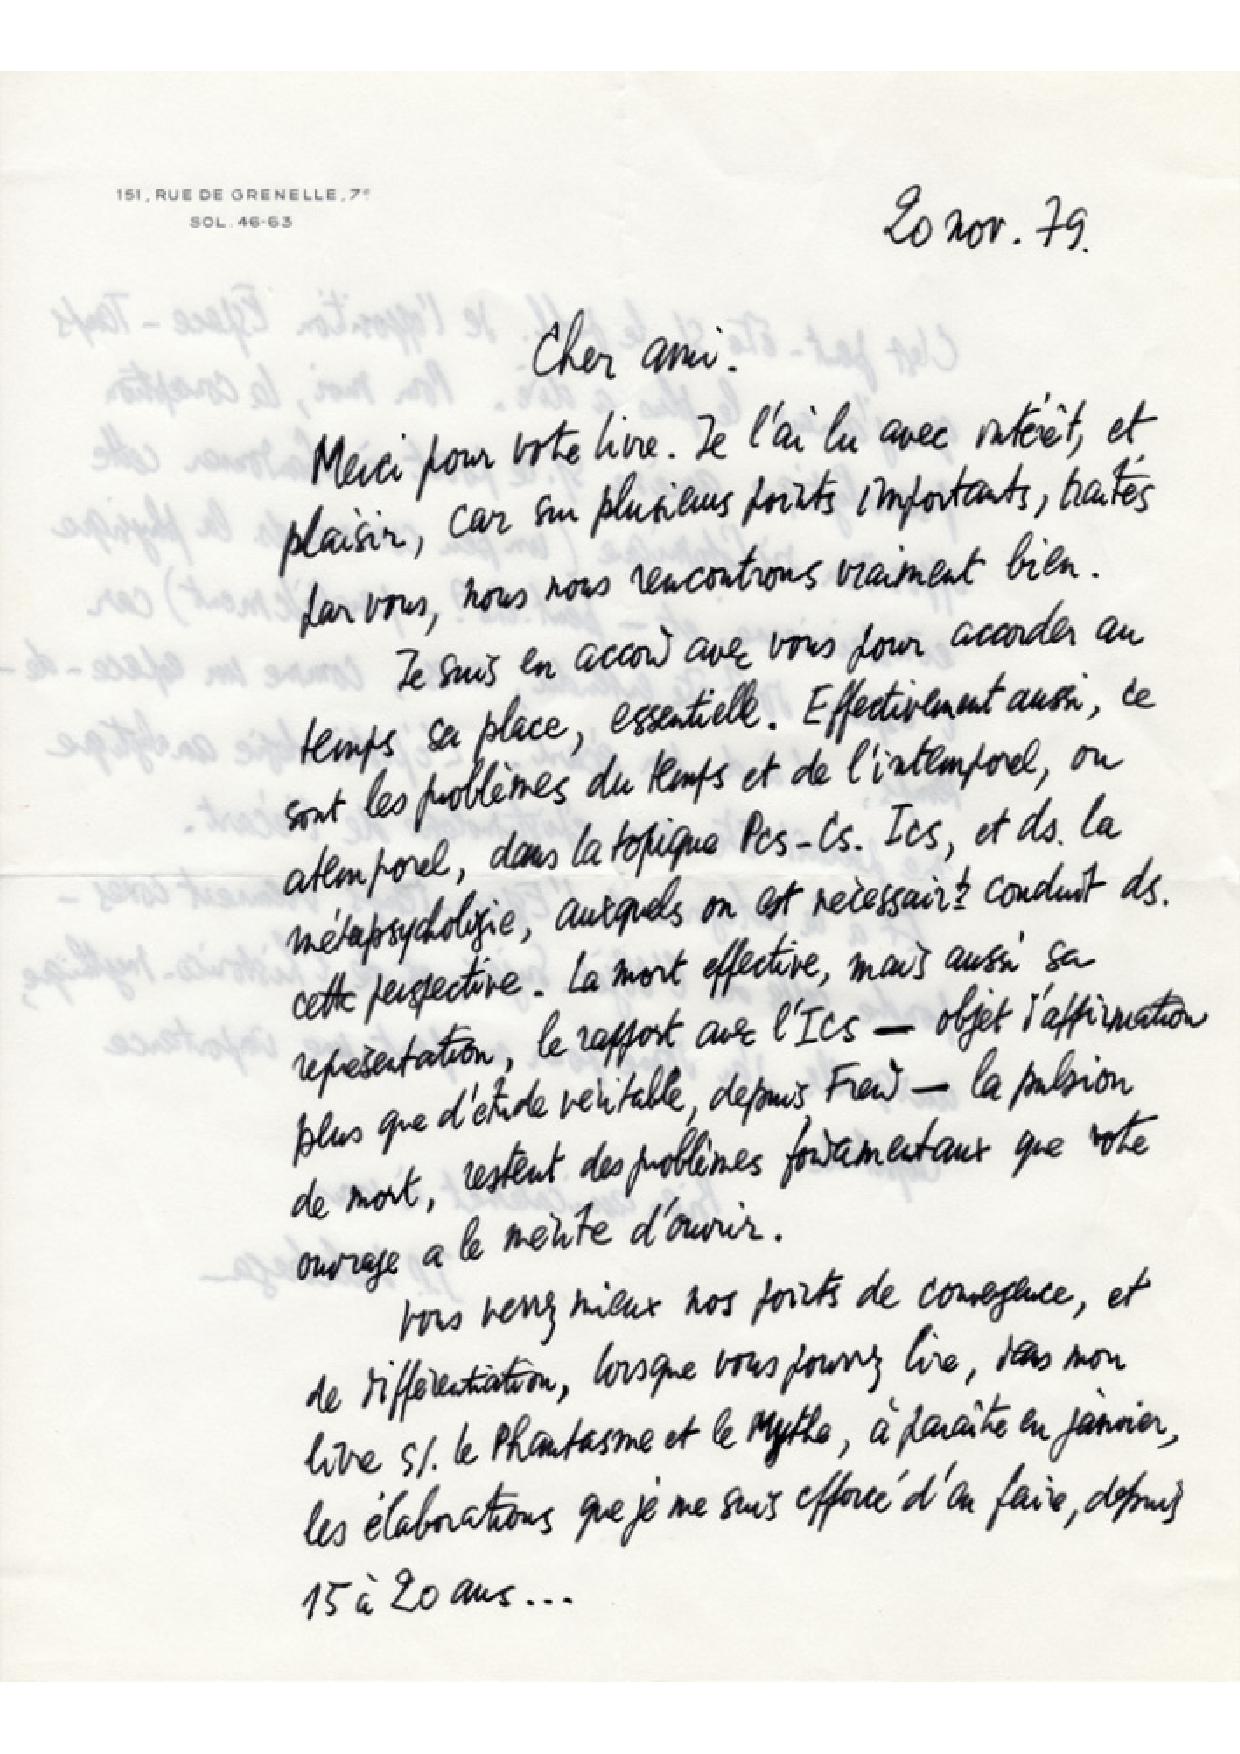 151, RUE DE GRENELLE, 7e
SOL. 46-63
20 nov. 79.
Cher ami.
Merci pour votre livre. Je l'ai lu avec intérêt, et
plaisir, car sur plusieurs points importants, traités
par vous, nous nous rencontrons vraiment bien.
Je suis en accord avec vous pour accorder au
temps sa place, essentielle. Effectivement aussi, ce
sont les problèmes du temps et de l'intemporel, ou
atemporel, dans la topique Pcs-Cs. Ics, et ds. la
métapsychologie, auxquels on est nécessairt conduit ds.
cette perspective. La mort effective, mais aussi sa
représentation, le rapport avec l'Ics — objet d'affirmation
plus que d'étude véritable, depuis Freud — la pulsion
de mort, restent des problèmes fondamentaux que votre
ouvrage a le mérite d'ouvrir.
Vous verrez mieux nos points de convergence, et
de différentiation, lorsque vous pourrez lire, dans mon
livre s/. le Phantasme et le Mythe, à paraître en janvier,
les élaborations que je me suis efforcé d'en faire, depuis
15 à 20 ans...